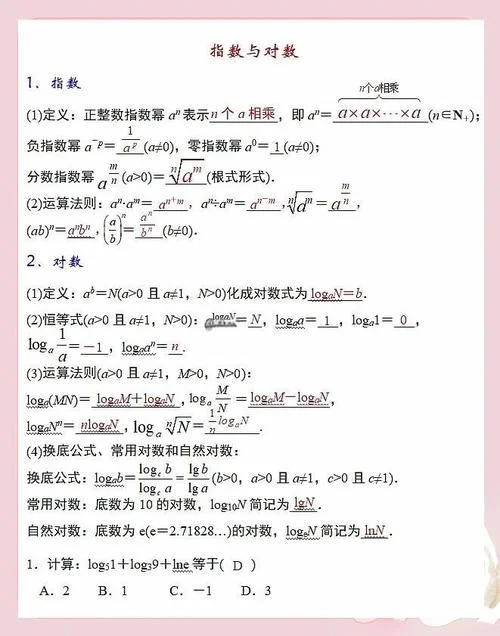 指数与对数
1、指数
n个a相乘
(1)定义：正整数指数幂 aⁿ 表示 n 个 a 相乘，即 aⁿ= a×a×⋯×a (n∈N₊)；
负指数幂 a⁻ᵖ= 1/aᵖ (a≠0)，零指数幂 a⁰= 1 (a≠0)；
分数指数幂 a^(m/n) (a>0)= ⁿ√(aᵐ) (根式形式).
(2)运算法则：aⁿ·aᵐ= aⁿ⁺ᵐ ，aⁿ÷aᵐ= aⁿ⁻ᵐ ，ⁿ√(aᵐ)= a^(m/n)，
(ab)ⁿ= aⁿbⁿ ，(a/b)ⁿ= aⁿ/bⁿ (b≠0).
2、对数
(1)定义：aᵇ=N(a>0 且 a≠1，N>0)化成对数式为 logₐN=b.
(2)恒等式(a>0 且 a≠1，N>0)：a^(logₐN)= N，logₐa= 1 ，logₐ1= 0 ，
logₐ(1/a)= −1 ，logₐaⁿ= n .
(3)运算法则(a>0 且 a≠1，M>0，N>0)：
logₐ(MN)= logₐM+logₐN ，logₐ(M/N)= logₐM−logₐN，
logₐNⁿ= nlogₐN ，logₐⁿ√N= (1/n)logₐN .
(4)换底公式、常用对数和自然对数：
换底公式：logₐb= log_c b/log_c a = lg b/lg a (b>0，a>0 且 a≠1，c>0 且 c≠1).
常用对数：底数为 10 的对数，log₁₀N 简记为 lgN.
自然对数：底数为 e(e=2.71828…)的对数，logₑN 简记为 lnN.
1．计算：log₅1+log₃9+lne等于( D )
A．2 B．1 C．−1 D．3